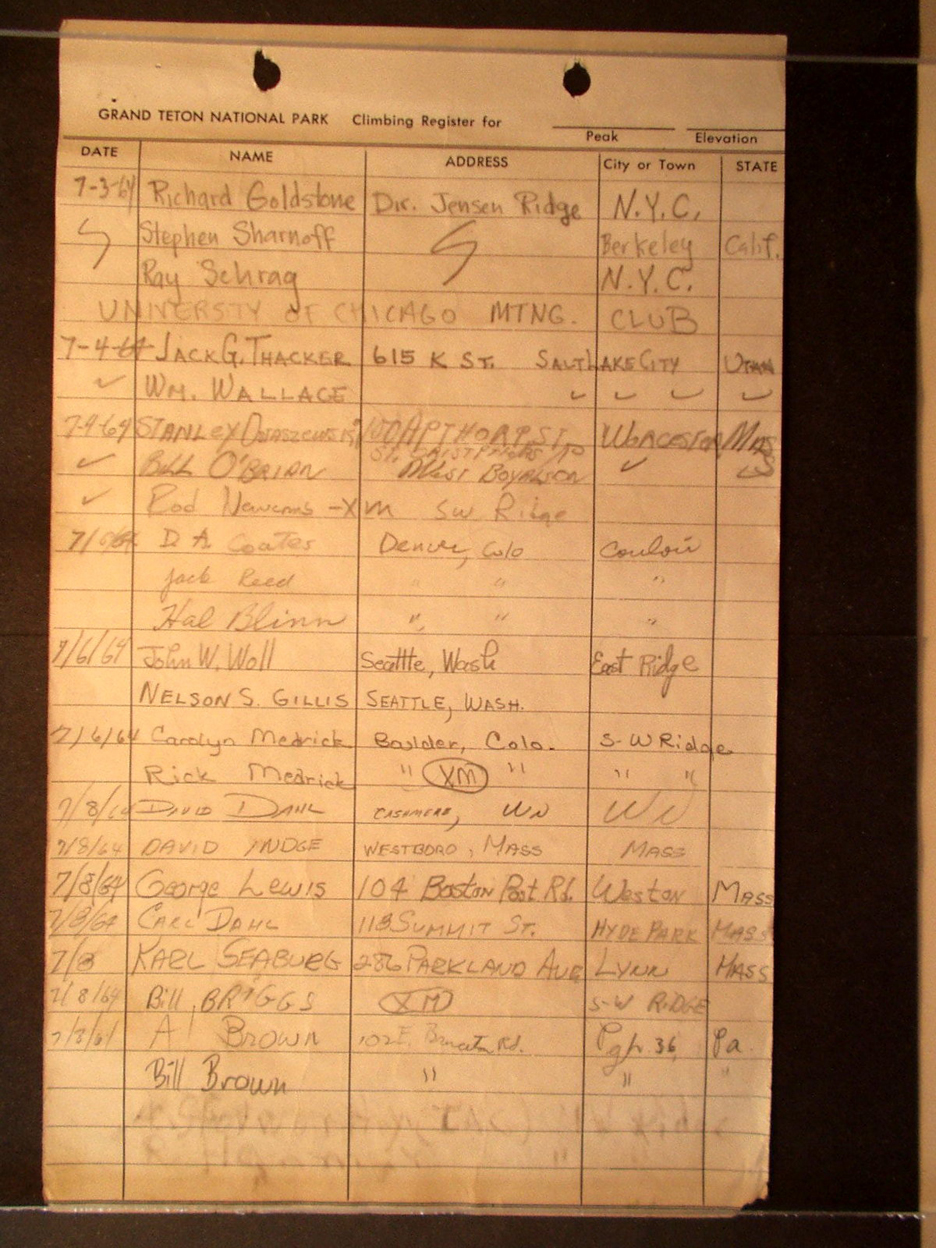 GRAND TETON NATIONAL PARK Climbing Register for
Peak Elevation
DATE NAME ADDRESS City or Town STATE
7-3-64 Richard Goldstone Dir. Jensen Ridge N.Y.C.
Stephen Sharnoff Berkeley Calif.
Ray Schrag N.Y.C.
UNIVERSITY OF CHICAGO MTNG. CLUB
7-4-64 JACK G. THACKER 615 K ST. SALT LAKE CITY UTAH
✓ WM. WALLACE ✓ ✓ ✓ ✓
7-4-64 STANLEY APTHORP ST. WORCESTER, MAS
✓ BILL O'BRIAN WEST BOYALSON ✓
✓ Rod Newcomb - XM SW Ridge
D. A. Coates Denver, Colo Couloir
Jack Reed " " "
Hal Blinn " " "
7/6/64 John W. Woll Seattle, Wash East Ridge
NELSON S. GILLIS SEATTLE, WASH.
7/6/64 Carolyn Medrick Boulder, Colo. S-W Ridge
Rick Medrick " XM " " "
7/8/64 DAVID DAHL CASHMERE, WN WN
7/8/64 DAVID INDGE WESTBORO, MASS MASS
7/8/64 George Lewis 104 Boston Post Rd. Weston MASS
7/8/64 CARL DAHL 118 SUMMIT ST. HYDE PARK MASS
7/8 KARL SEABURG 286 PARKLAND AVE LYNN MASS
7/8/64 Bill BRIGGS XM S-W RIDGE
A BROWN 102 E. Rd. Pgh. 36, Pa.
Bill Brown " " "